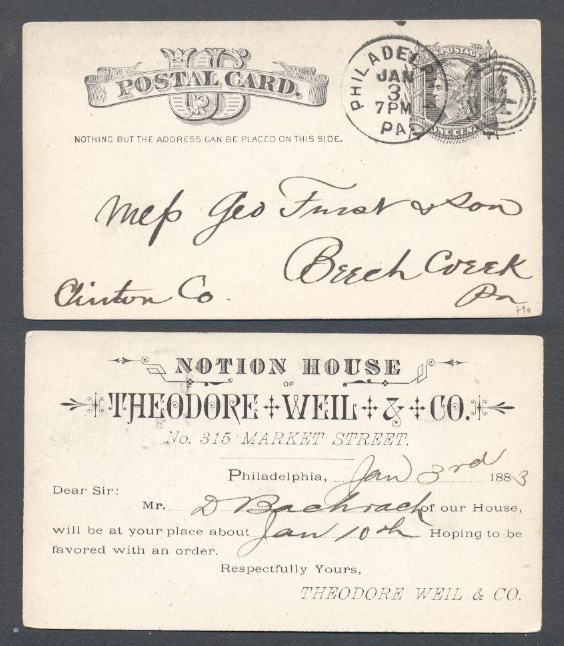 US
POSTAL CARD.
NOTHING BUT THE ADDRESS CAN BE PLACED ON THIS SIDE.
PHILADEL
JAN
3
7PM
PA
POSTAGE
ONE CENT
Mess Geo Furst & Son
Beech Creek
Clinton Co.
Pa
790
NOTION HOUSE
OF
THEODORE WEIL & CO.
No. 315 MARKET STREET.
Philadelphia, Jan 3rd 1883
Dear Sir:
Mr. D Bachrach of our House,
will be at your place about Jan 10th Hoping to be
favored with an order.
Respectfully Yours,
THEODORE WEIL & CO.